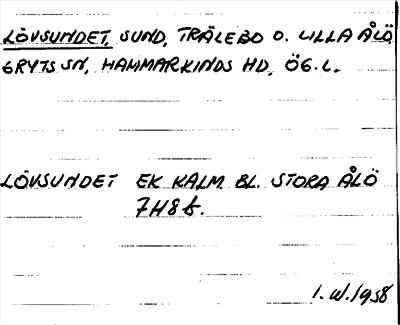 LÖVSUNDET, SUND, TRÄLEBO O. LILLA ÅLÖ
GRYTS SN, HAMMARKINDS HD, ÖG. L.
LÖVSUNDET EK KALM. BL. STORA ÅLÖ
7H8f.
I. W. 1958